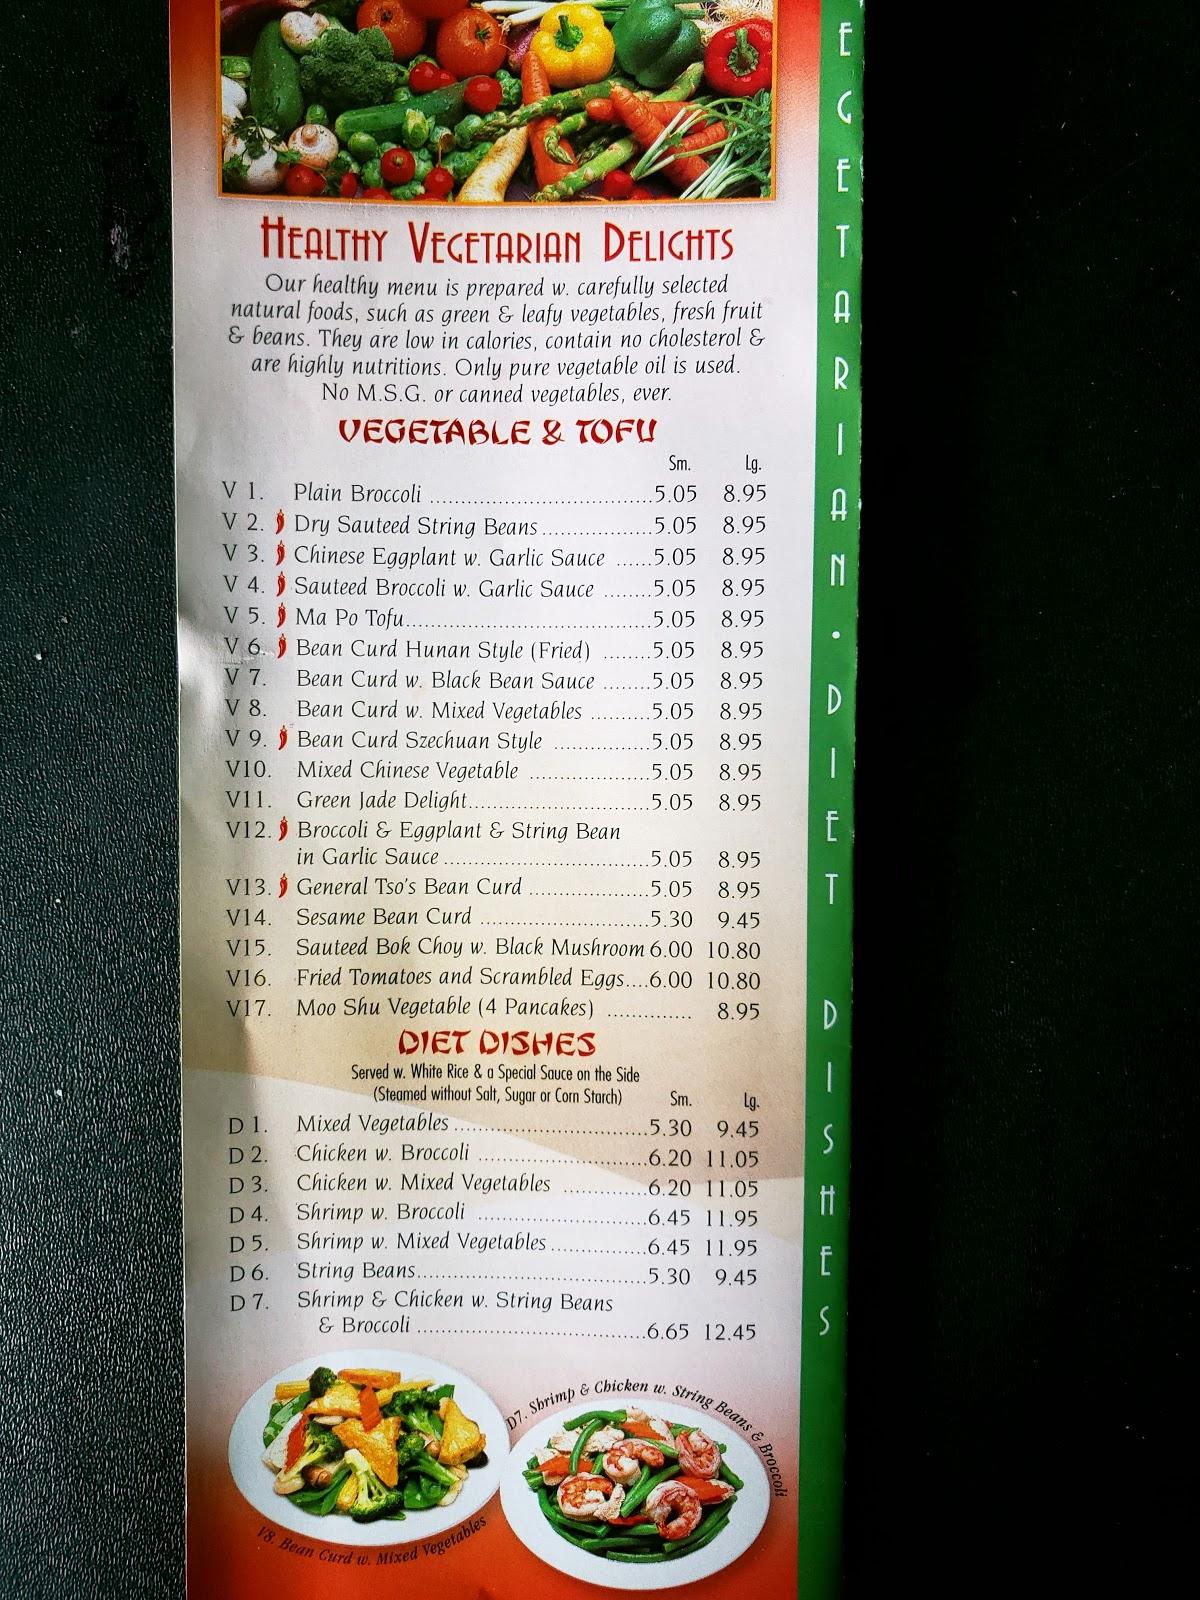 HEALTHY VEGETARIAN DELIGHTS
Our healthy menu is prepared w. carefully selected
natural foods, such as green & leafy vegetables, fresh fruit
& beans. They are low in calories, contain no cholesterol &
are highly nutritions. Only pure vegetable oil is used.
No M.S.G. or canned vegetables, ever.
VEGETABLE & TOFU
Sm. Lg.
V 1. Plain Broccoli ..............................5.05 8.95
V 2. Dry Sauteed String Beans...............5.05 8.95
V 3. Chinese Eggplant w. Garlic Sauce ......5.05 8.95
V 4. Sauteed Broccoli w. Garlic Sauce ........5.05 8.95
V 5. Ma Po Tofu.................................5.05 8.95
V 6. Bean Curd Hunan Style (Fried) ........5.05 8.95
V 7. Bean Curd w. Black Bean Sauce ........5.05 8.95
V 8. Bean Curd w. Mixed Vegetables ..........5.05 8.95
V 9. Bean Curd Szechuan Style ...............5.05 8.95
V10. Mixed Chinese Vegetable ..................5.05 8.95
V11. Green Jade Delight..........................5.05 8.95
V12. Broccoli & Eggplant & String Bean
in Garlic Sauce ..............................5.05 8.95
V13. General Tso's Bean Curd ..................5.05 8.95
V14. Sesame Bean Curd .........................5.30 9.45
V15. Sauteed Bok Choy w. Black Mushroom 6.00 10.80
V16. Fried Tomatoes and Scrambled Eggs....6.00 10.80
V17. Moo Shu Vegetable (4 Pancakes) .............. 8.95
DIET DISHES
Served w. White Rice & a Special Sauce on the Side
(Steamed without Salt, Sugar or Corn Starch) Sm. Lg.
D 1. Mixed Vegetables ...........................5.30 9.45
D 2. Chicken w. Broccoli ........................6.20 11.05
D 3. Chicken w. Mixed Vegetables .............6.20 11.05
D 4. Shrimp w. Broccoli ........................6.45 11.95
D 5. Shrimp w. Mixed Vegetables...............6.45 11.95
D 6. String Beans.................................5.30 9.45
D 7. Shrimp & Chicken w. String Beans
& Broccoli .................................6.65 12.45
V8. Bean Curd w. Mixed Vegetables
D7. Shrimp & Chicken w. String Beans & Broccoli
EGETARIAN • DIET DISHES